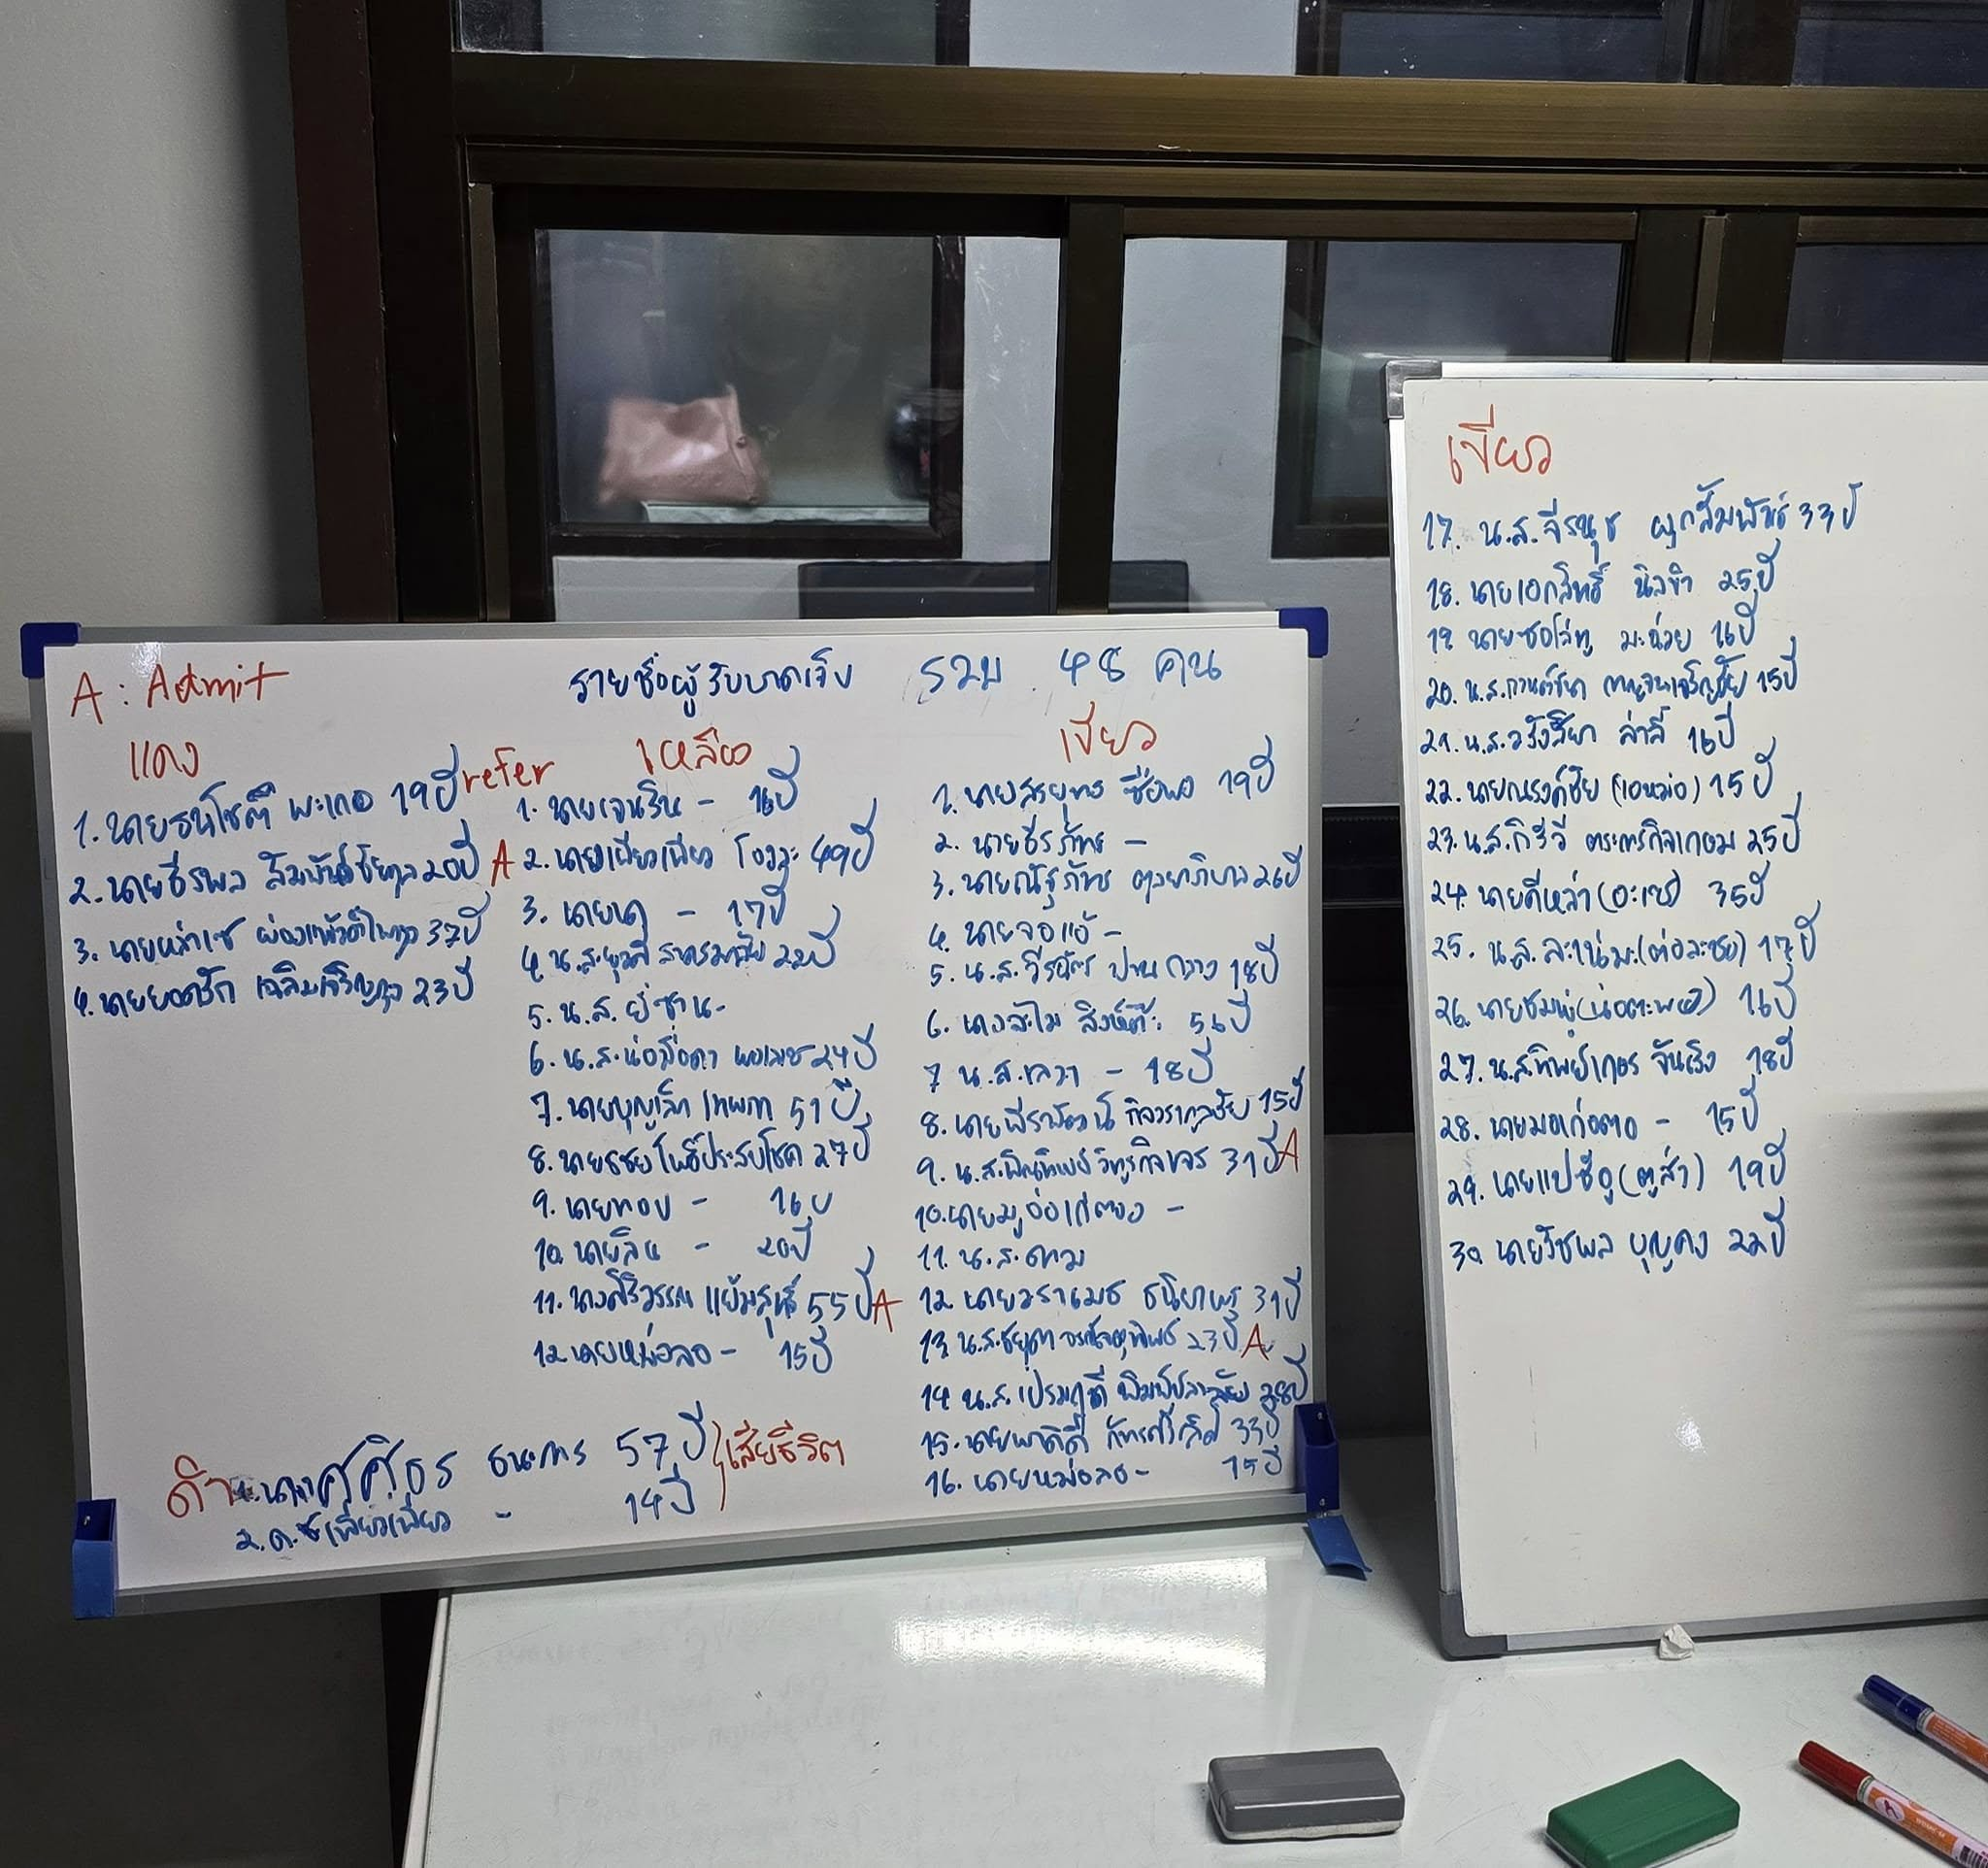 A : Admit
รายชื่อผู้รับบาดเจ็บ รวม 48 คน
แดง
1. นายธนโชติ พะเกอ 19 ปี refer
2. นายธีรพล สัมพันธ์ชัยกุล 20 ปี A
3. นายหล่าเซ 37 ปี
4. นายยอดรัก เฉลิมเจริญกุล 23 ปี
เหลือง
1. นายเจนริน - 16 ปี
2. นายเผียวเผียว 49 ปี
3. นาย - 17 ปี
4. น.ส. 22 ปี
5. น.ส. ยี่ซาน -
6. น.ส. 24 ปี
7. นายบุญเลิก เทพกา 51 ปี
8. นายธชย โพธิ์ประสบโชค 27 ปี
9. นายทอบ - 16 ป
10. นาย - 20 ปี
11. นางสิริวรรณ แย้มสุนธ์ 55 ปี A
12. นายหม่อลอ - 15 ปี
เขียว
1. นายสรยุทธ ซือพอ 19 ปี
2. นายธีรภัทร -
3. นายณัฐภัทร ตุลยาภิบาล 26 ปี
4. นายจอแอ้ -
5. น.ส. วีรฉัตร ปานกลาง 18 ปี
6. 56 ปี
7. น.ส. เลวา - 18 ปี
8. นายพีรพัฒน์ กิจวรากูลชัย 15 ปี
9. น.ส. พิณทิพย์ วิทูรกิจขจร 31 ปี A
10. นายมูอ่อเก่ตอง -
11. น.ส. ดาาว
12. นายวราเมธ 31 ปี
13. น.ส. ชยุตา 23 ปี A
14. น.ส. เปรมฤดี 28 ปี
15. นายพาคิดี 33 ปี
16. นายหม่อลอ - 15 ปี
ดำ 1. ศศิธร ธนะภาร 57 ปี } เสียชีวิต
2. ด.ช เพียวเพียว - 14 ปี
เขียว
17. น.ส. จีรนุช ผูกสัมพันธ์ 33 ปี
18. นายเอกสิทธิ์ นิลขำ 25 ปี
19. นายซอโล่ทู มะฉ่วย 16 ปี
20. น.ส. กานต์ธิดา กาญจนเจริญชัย 15 ปี
21. น.ส. วรังสิยา ล่าลี้ 16 ปี
22. นายณรงค์ชัย (เอหม่อ) 15 ปี
23. น.ส. กิรีวี ตระการกิจเกษม 25 ปี
24. นายดีหล่า (อะเซ) 35 ปี
25. น.ส. ละเน่มะ (ต่อละซอ) 17 ปี
26. นายชมพู่ 16 ปี
27. น.ส. ทิพย์เกษร จันเริง 18 ปี
28. นายมอเก่อตอ - 15 ปี
29. นายแปซือ (ตูส่า) 19 ปี
30. นายวัชพล บุญคง 22 ปี